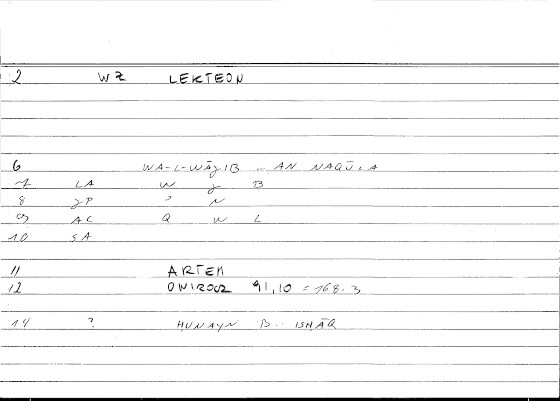 2 WZ LEKTEON
6 WA-L-WĀǧIB ... AN NAQŪLA
7 LA W ǧ B
8 ǧP ʾ N
9 AC Q W L
10 SA
11 ARTEM
12 ONIROCR 91,10 = 168.3
14 ? HUNAYN B. ISHĀQ